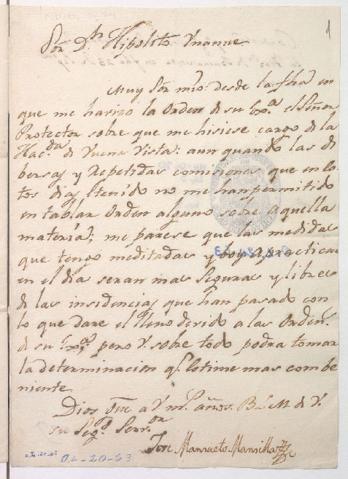 1
Sor Dn Hipolito Vnanue
Muy Sor mio: desde la fha en
que me harizo la Orden de su Exa el Señor
Protector sobre que me hisiese cargo de la
Hacda de Vuena Vista: aun quando las di
bersas y repetidas comiciones que en es
tos dias he tenido no me han permitido
entablar Orden alguno sobre aquella
materia; me parese que las medidas
que tengo meditadas y boy a practicar
en el dia seran mas seguras y libres
de las insidencias que han pasado con
lo que dare el lleno devido a las Orden.s
de su Exa pero V. sobre todo podra tomar
la determinacion qe estime mas combe
niente.
Dios Gue a V ms. años. B L M de V.
su Segº Servor
Jose Manzueto Mansilla
02-20-63